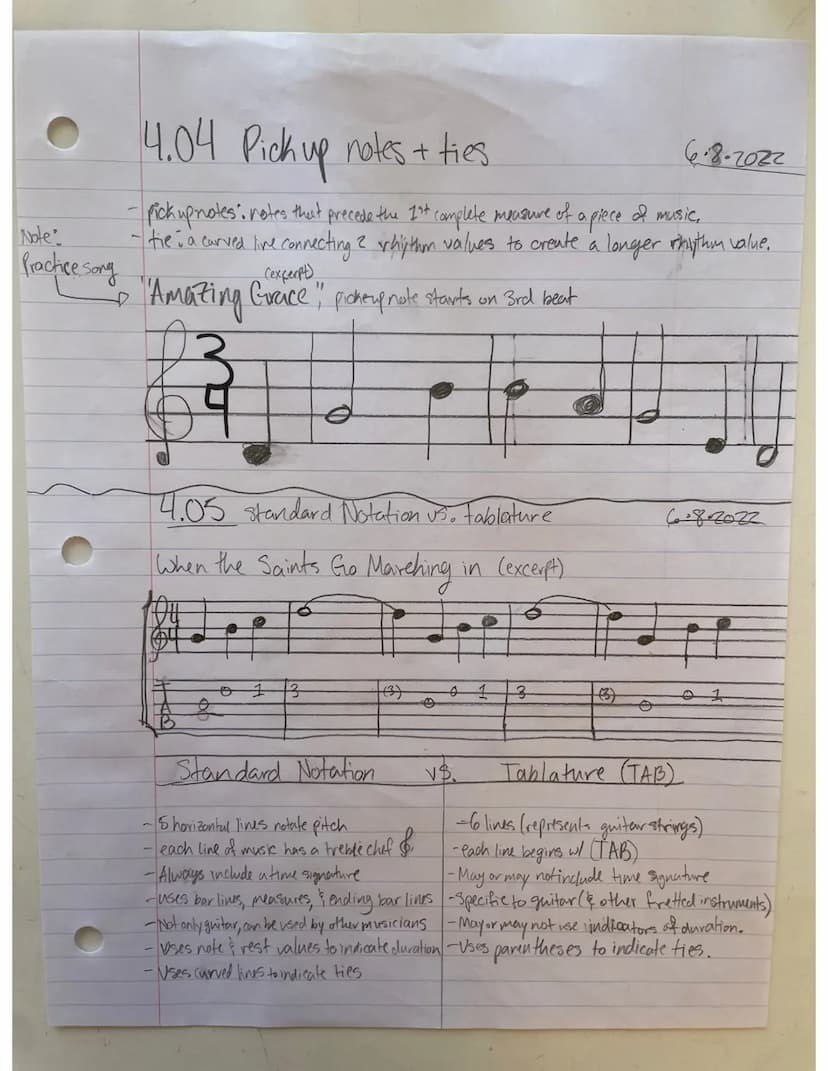 4.04 Pickup notes + ties
6·8·2022
- pickupnotes: notes that precede the 1st complete measure of a piece of music.
- tie: a curved line connecting 2 rhythm values to create a longer rhythm value.
Note:
Practice song
(excerpt)
"Amazing Grace", pickup note starts on 3rd beat
3
4
4.05 Standard Notation vs. tablature
6·8·2022
When the Saints Go Marching in (excerpt)
4
4
T
A
B
0 0 1 3 (3) 0 0 1 3 (3) 0 0 1
Standard Notation vs. Tablature (TAB)
- 5 horizontal lines notate pitch
- each line of music has a treble chef
- Always include a time signature
- uses bar lines, measures, & ending bar lines
- Not only guitar, can be used by other musicians
- Uses note & rest values to indicate duration
- Uses curved lines to indicate ties
- 6 lines (represents guitar strings)
- each line begins w/ (TAB)
- May or may not include time signature
- Specific to guitar (& other fretted instruments)
- May or may not use indicators of duration.
- Uses parentheses to indicate ties.